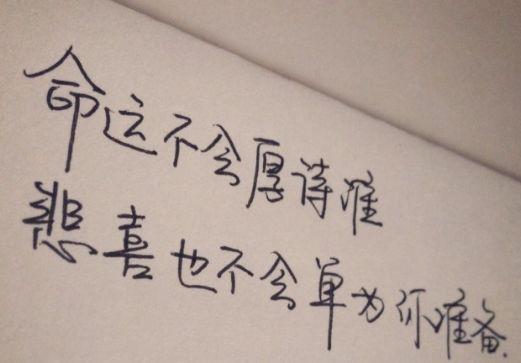 命运不会厚待谁
悲喜也不会单为你准备.